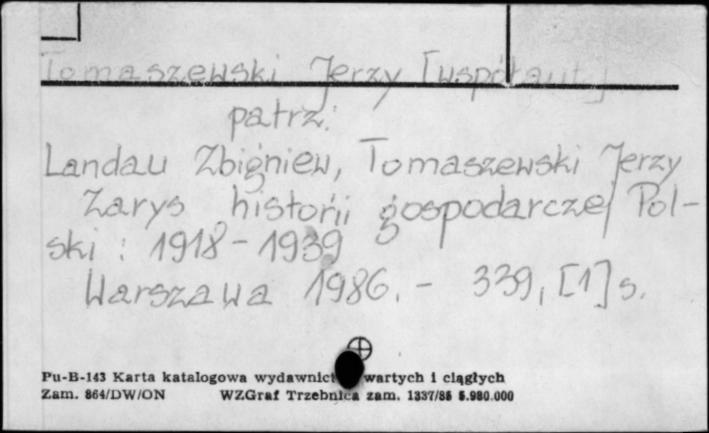 Tomaszewski Jerzy [współaut.]
patrz:
Landau Zbigniew, Tomaszewski Jerzy
Zarys historii gospodarczej Pol-
ski : 1918-1939
Warszawa 1986. - 339, [1] s.
Pu-B-143 Karta katalogowa wydawnict wartych i ciągłych
Zam. 864/DW/ON WZGraf Trzebnica zam. 1337/85 5.980.000